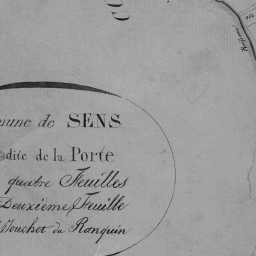 mune de SENS
dite de la Porte
quatre Feuilles
Deuxième Feuille
Mouchet du Ranquin